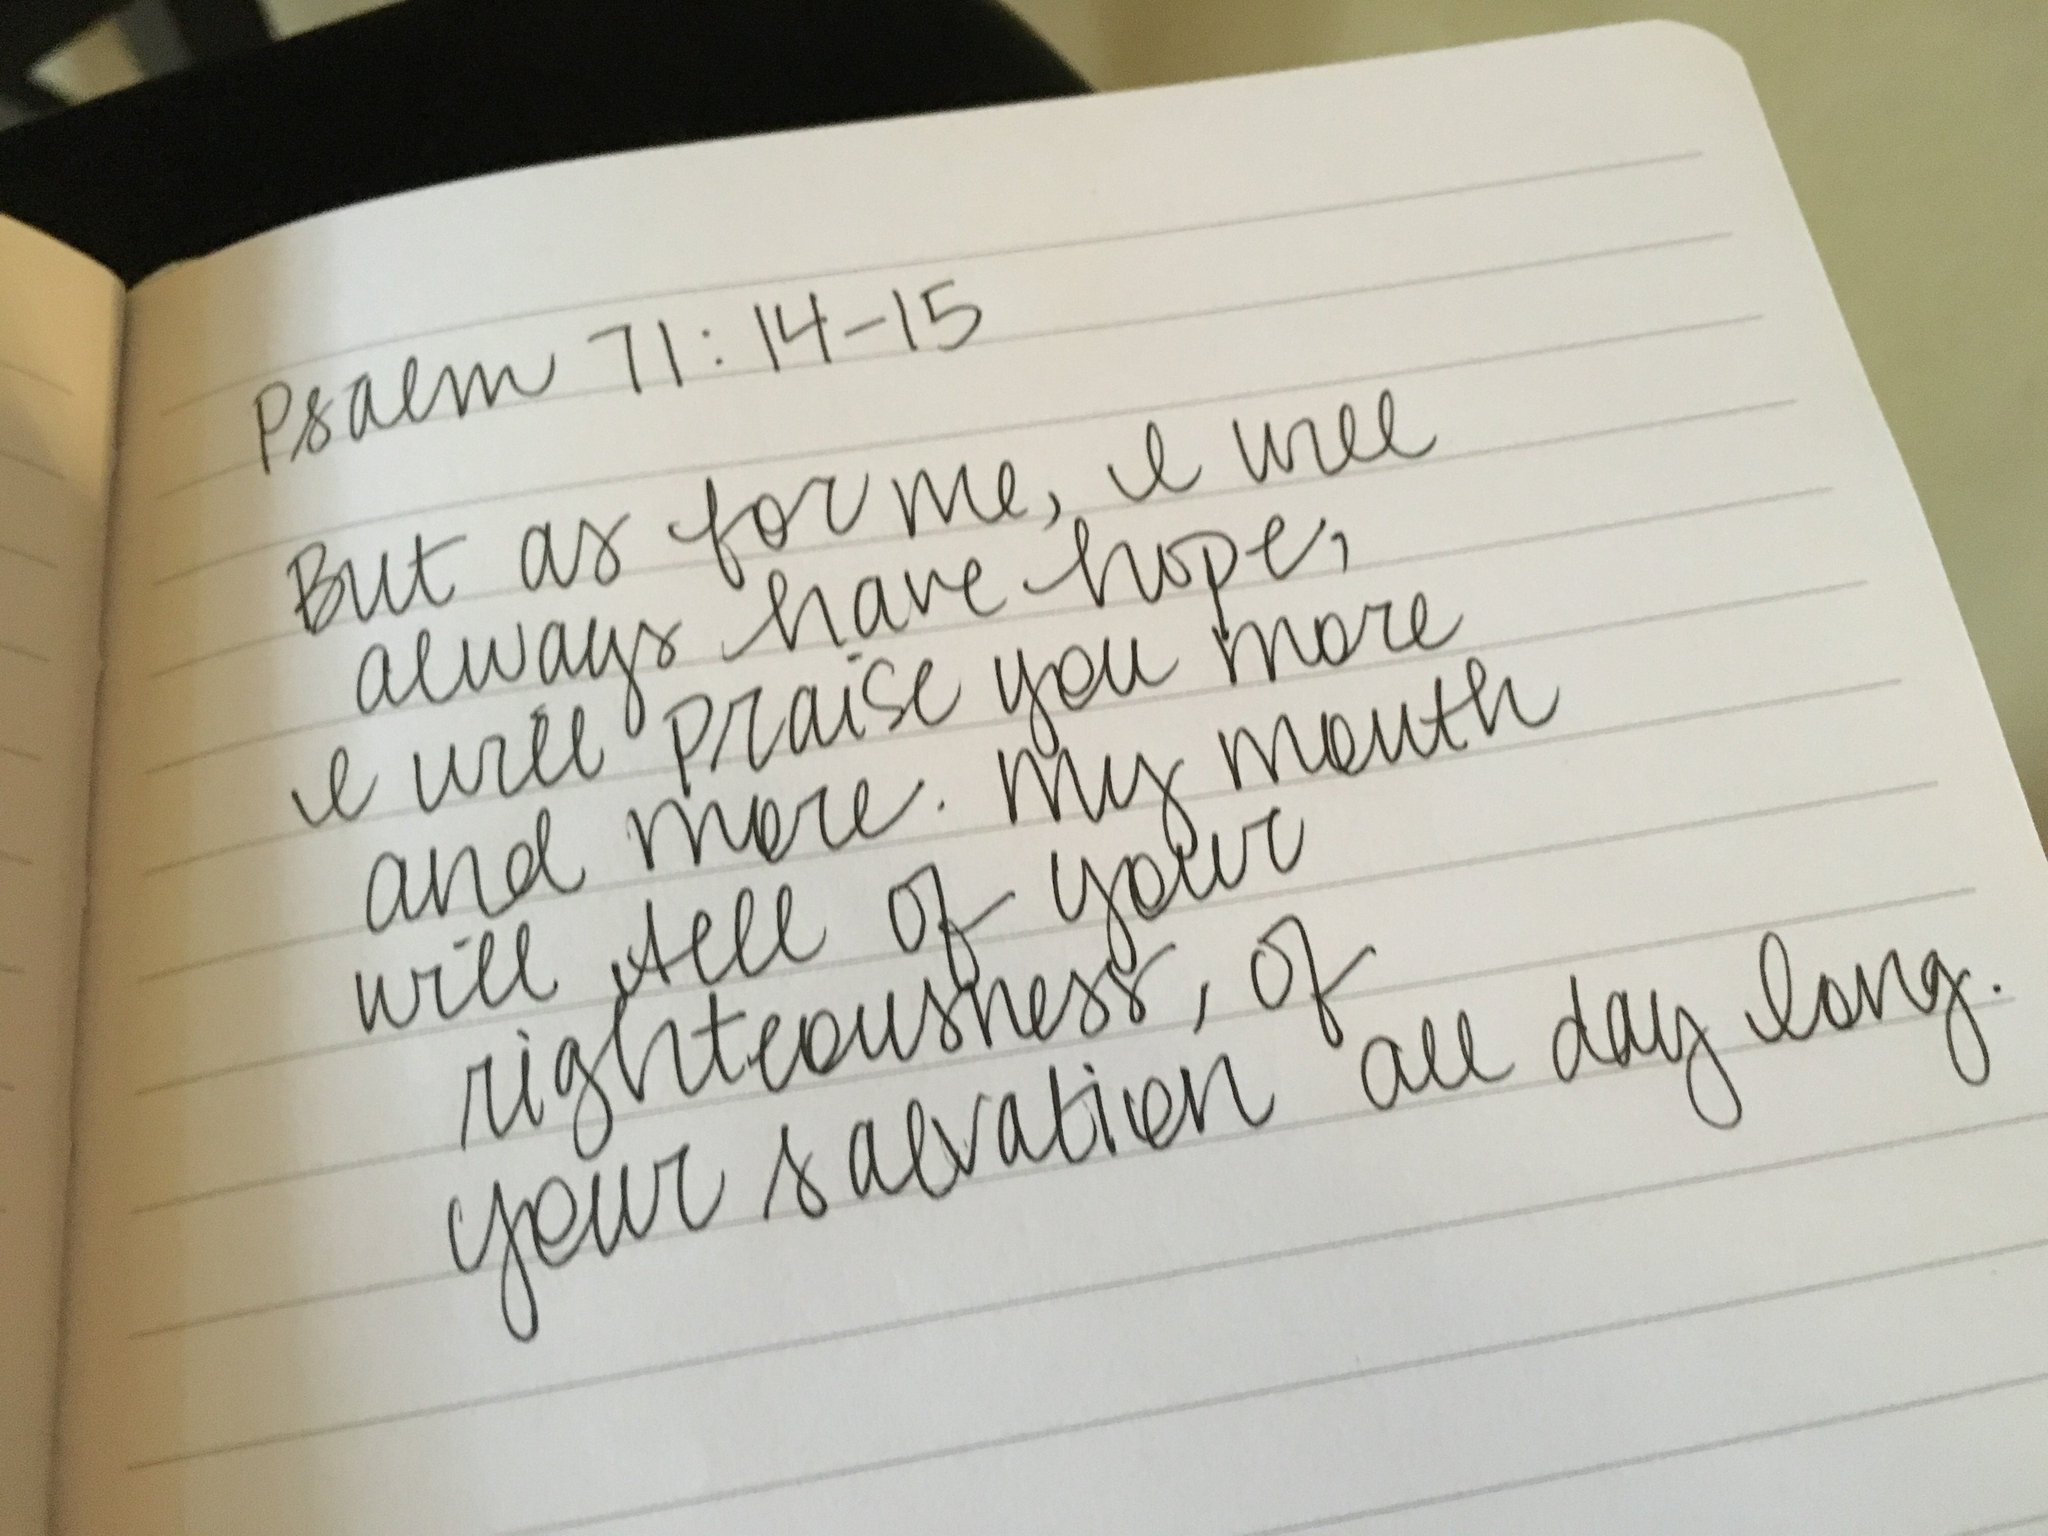 Psalm 71:14-15
But as for me, I will
always have hope,
I will praise you more
and more. My mouth
will tell of your
righteousness, of
your salvation all day long.